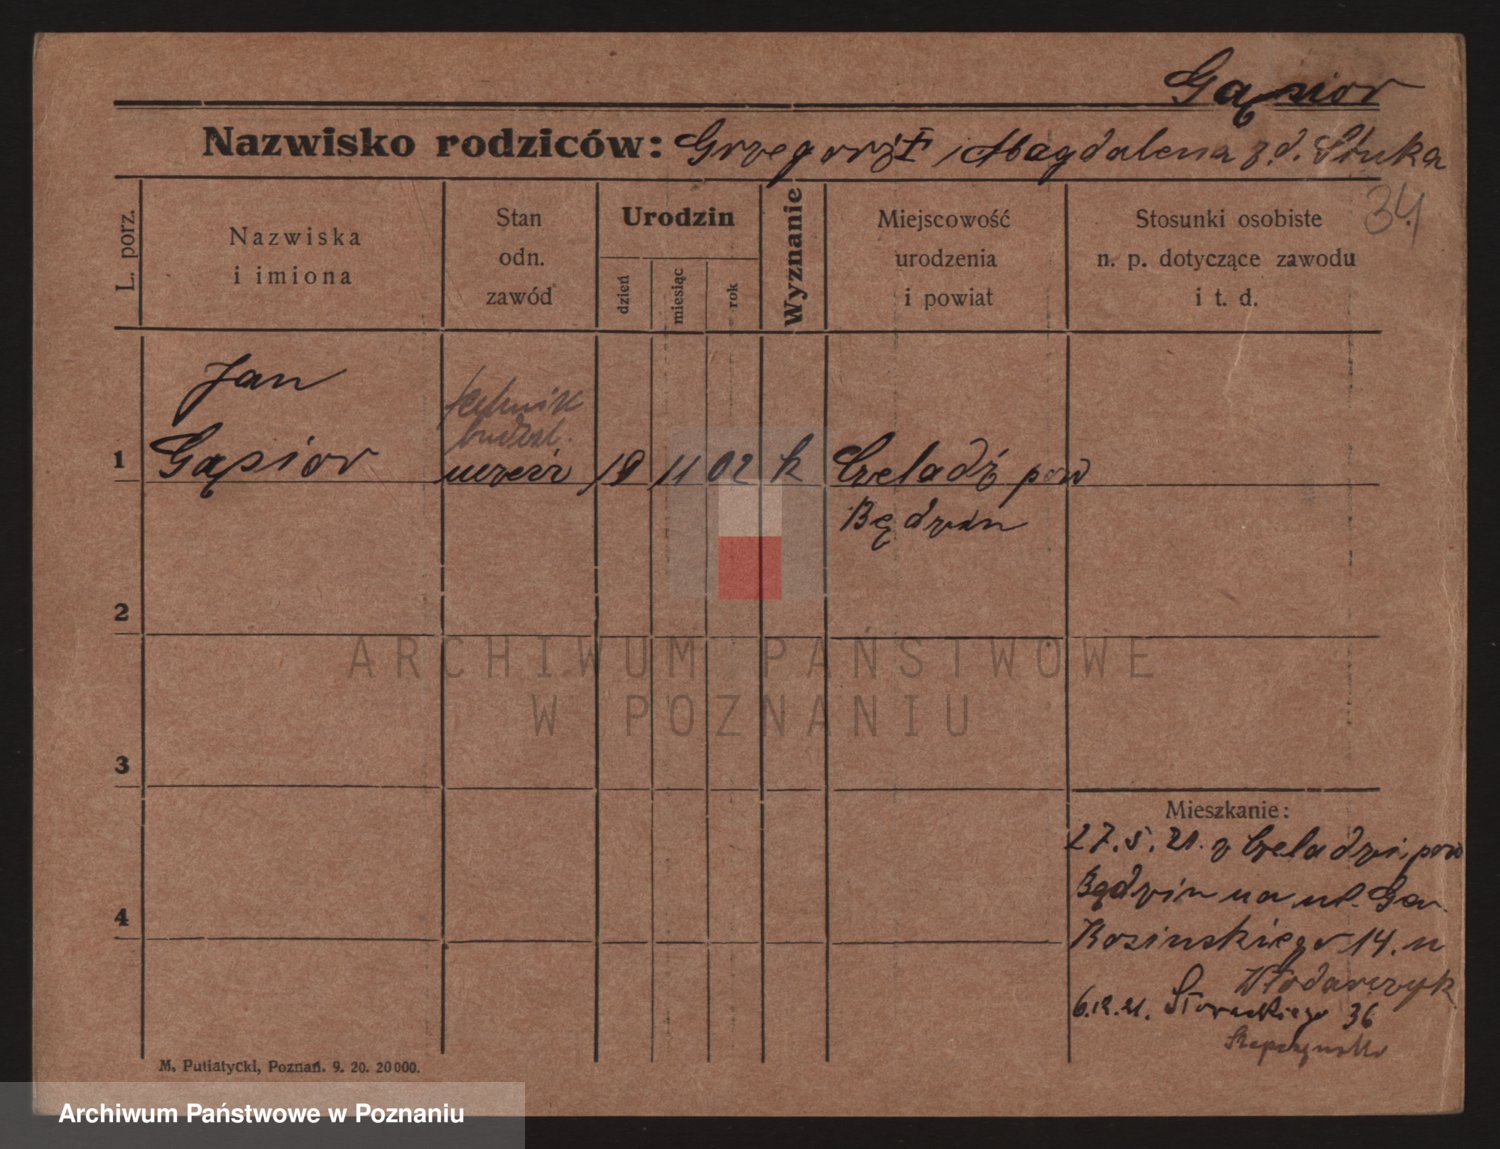 Gąsior
Nazwisko rodziców: Grzegorz i Magdalena z d. Stuka
34
L. porz.
Nazwiska
i imiona
Stan
odn.
zawód
Urodzin
dzień
miesiąc
rok
Wyznanie
Miejscowość
urodzenia
i powiat
Stosunki osobiste
n. p. dotyczące zawodu
i t. d.
Jan
technik
budowl.
1 Gąsior uczeń 19 11 02 k Czeladź pow
Będzin
2
ARCHIWUM PAŃSTWOWE
W POZNANIU
3
Mieszkanie:
27.5.21. z Czeladzi, pow
Będzin na ul.
14. u
Włodarczyk
6.12.21. Słowackiego 36
4
M. Putiatycki, Poznań. 9. 20. 20000.
Archiwum Państwowe w Poznaniu